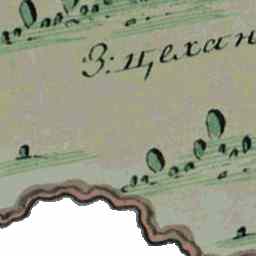 З: цехан